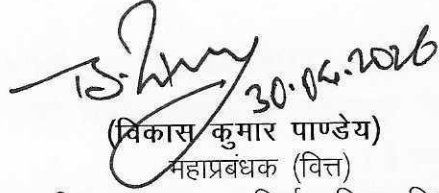 30.04.2026
(विकास कुमार पाण्डेय)
महाप्रबंधक (वित्त)